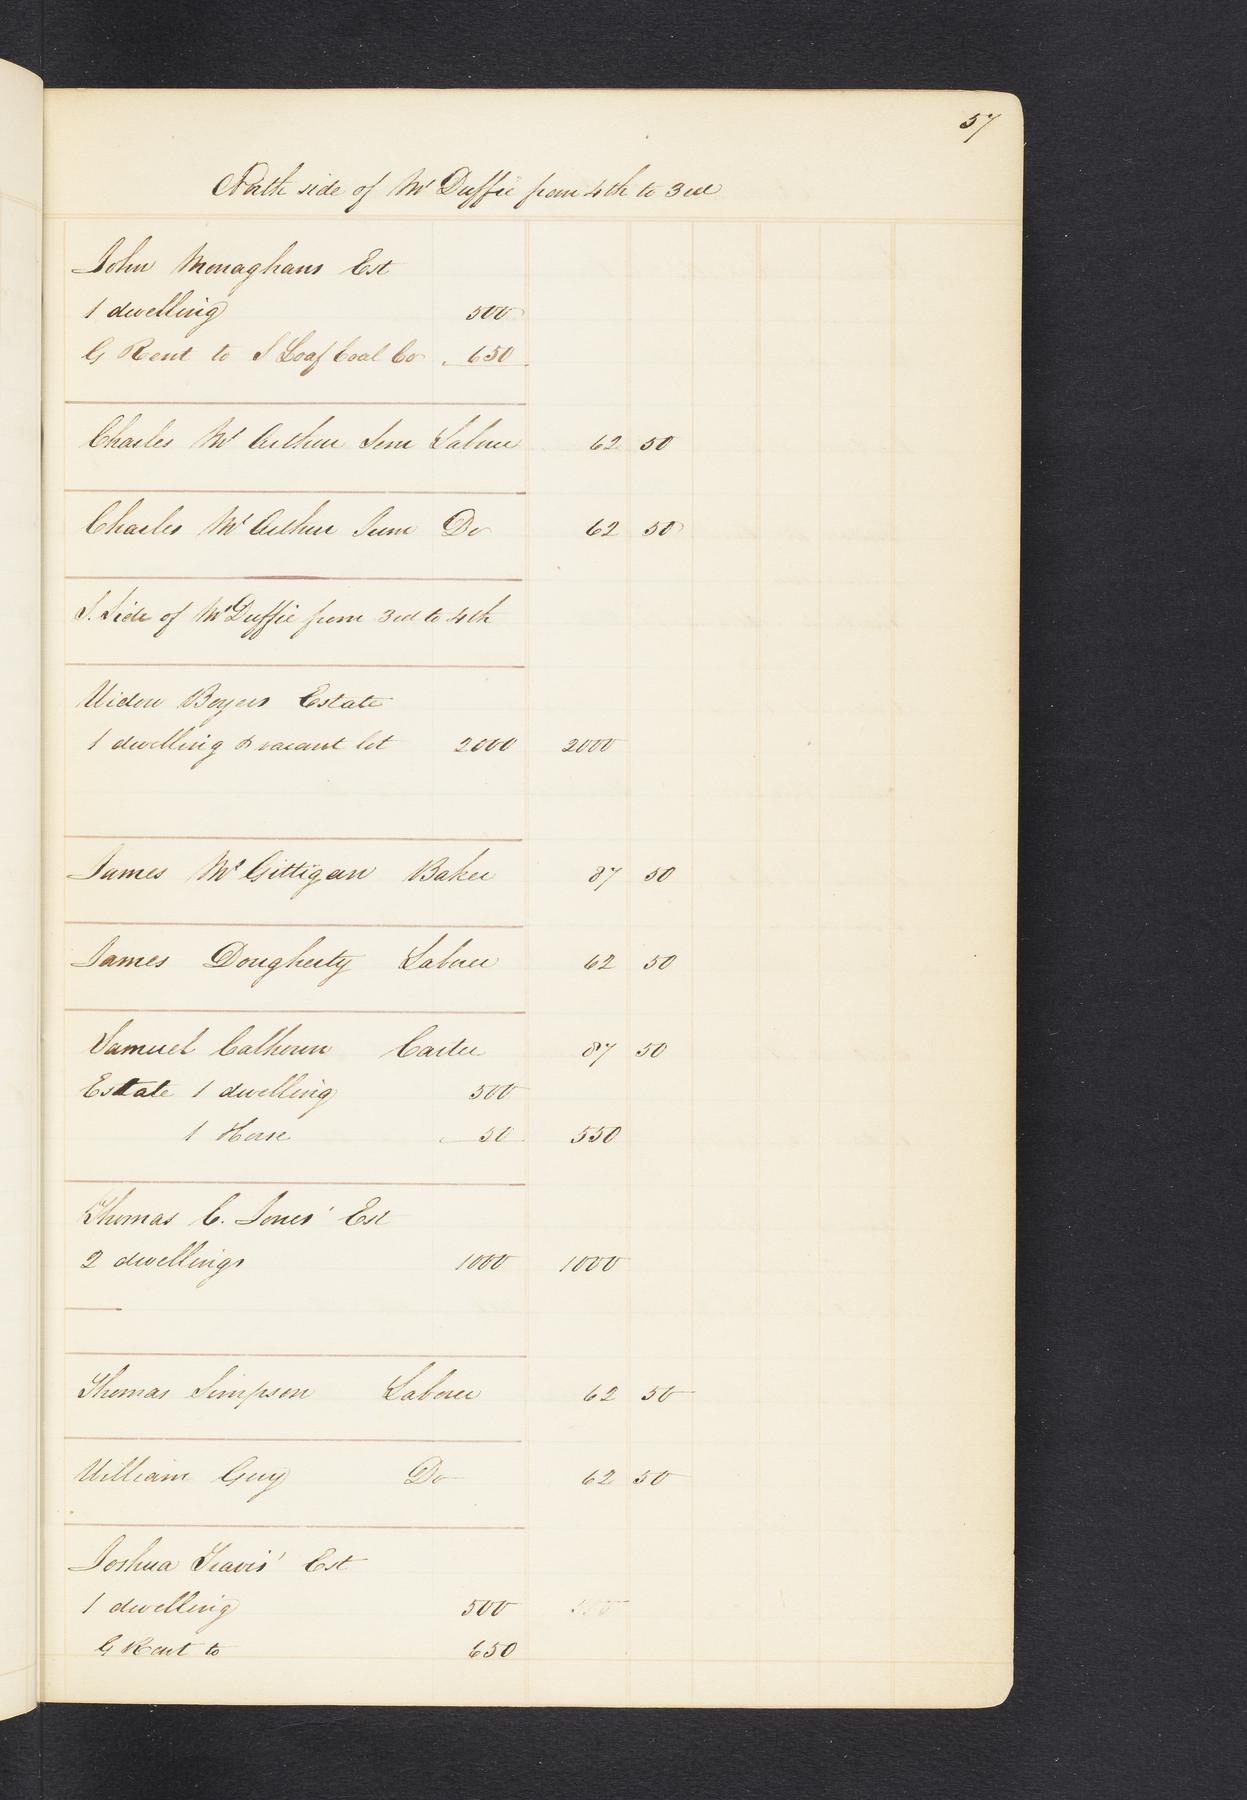 57
North side of Mc Duffie from 4th to 3rd
John Monaghans Est
1 dwelling 500
G Rent to S Loaf Coal Co 650
Charles Mc Arthur Senr Laborer 62 50
Charles Mc Arthur Junr Do 62 50
S. Side of McDuffie from 3rd to 4th
Widow Boyers Estate
1 dwelling & vacant lot 2000 2000
James McGittigan Baker 87 50
James Dougherty Laborer 62 50
Samuel Calhoun Carter 87 50
Estate 1 dwelling 500
1 Horse 50 550
Thomas C. Jones' Est
2 dwellings 1000 1000
Thomas Simpson Laborer 62 50
William Guy Do 62 50
Joshua Travis' Est
1 dwelling 500
G Rent to 650